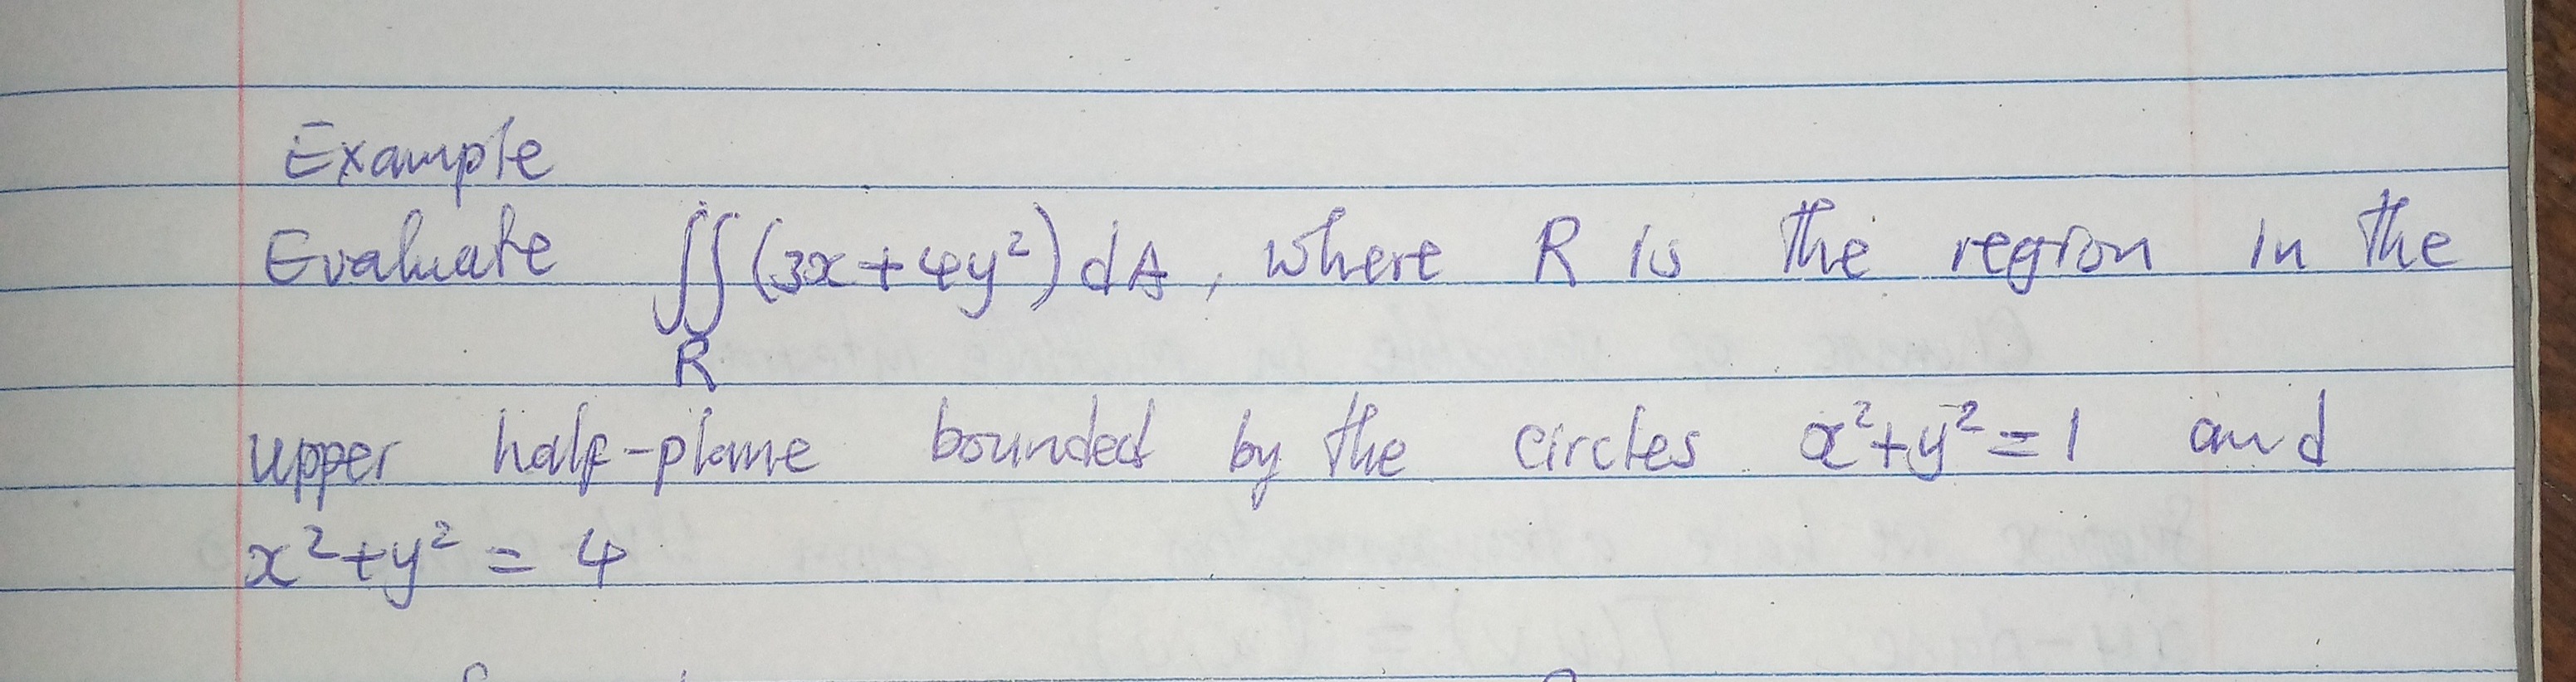 Example
Evaluate ∬(3x+4y²)dA, where R is the region in the
R
upper half-plane bounded by the circles x²+y²=1 and
x²+y² = 4